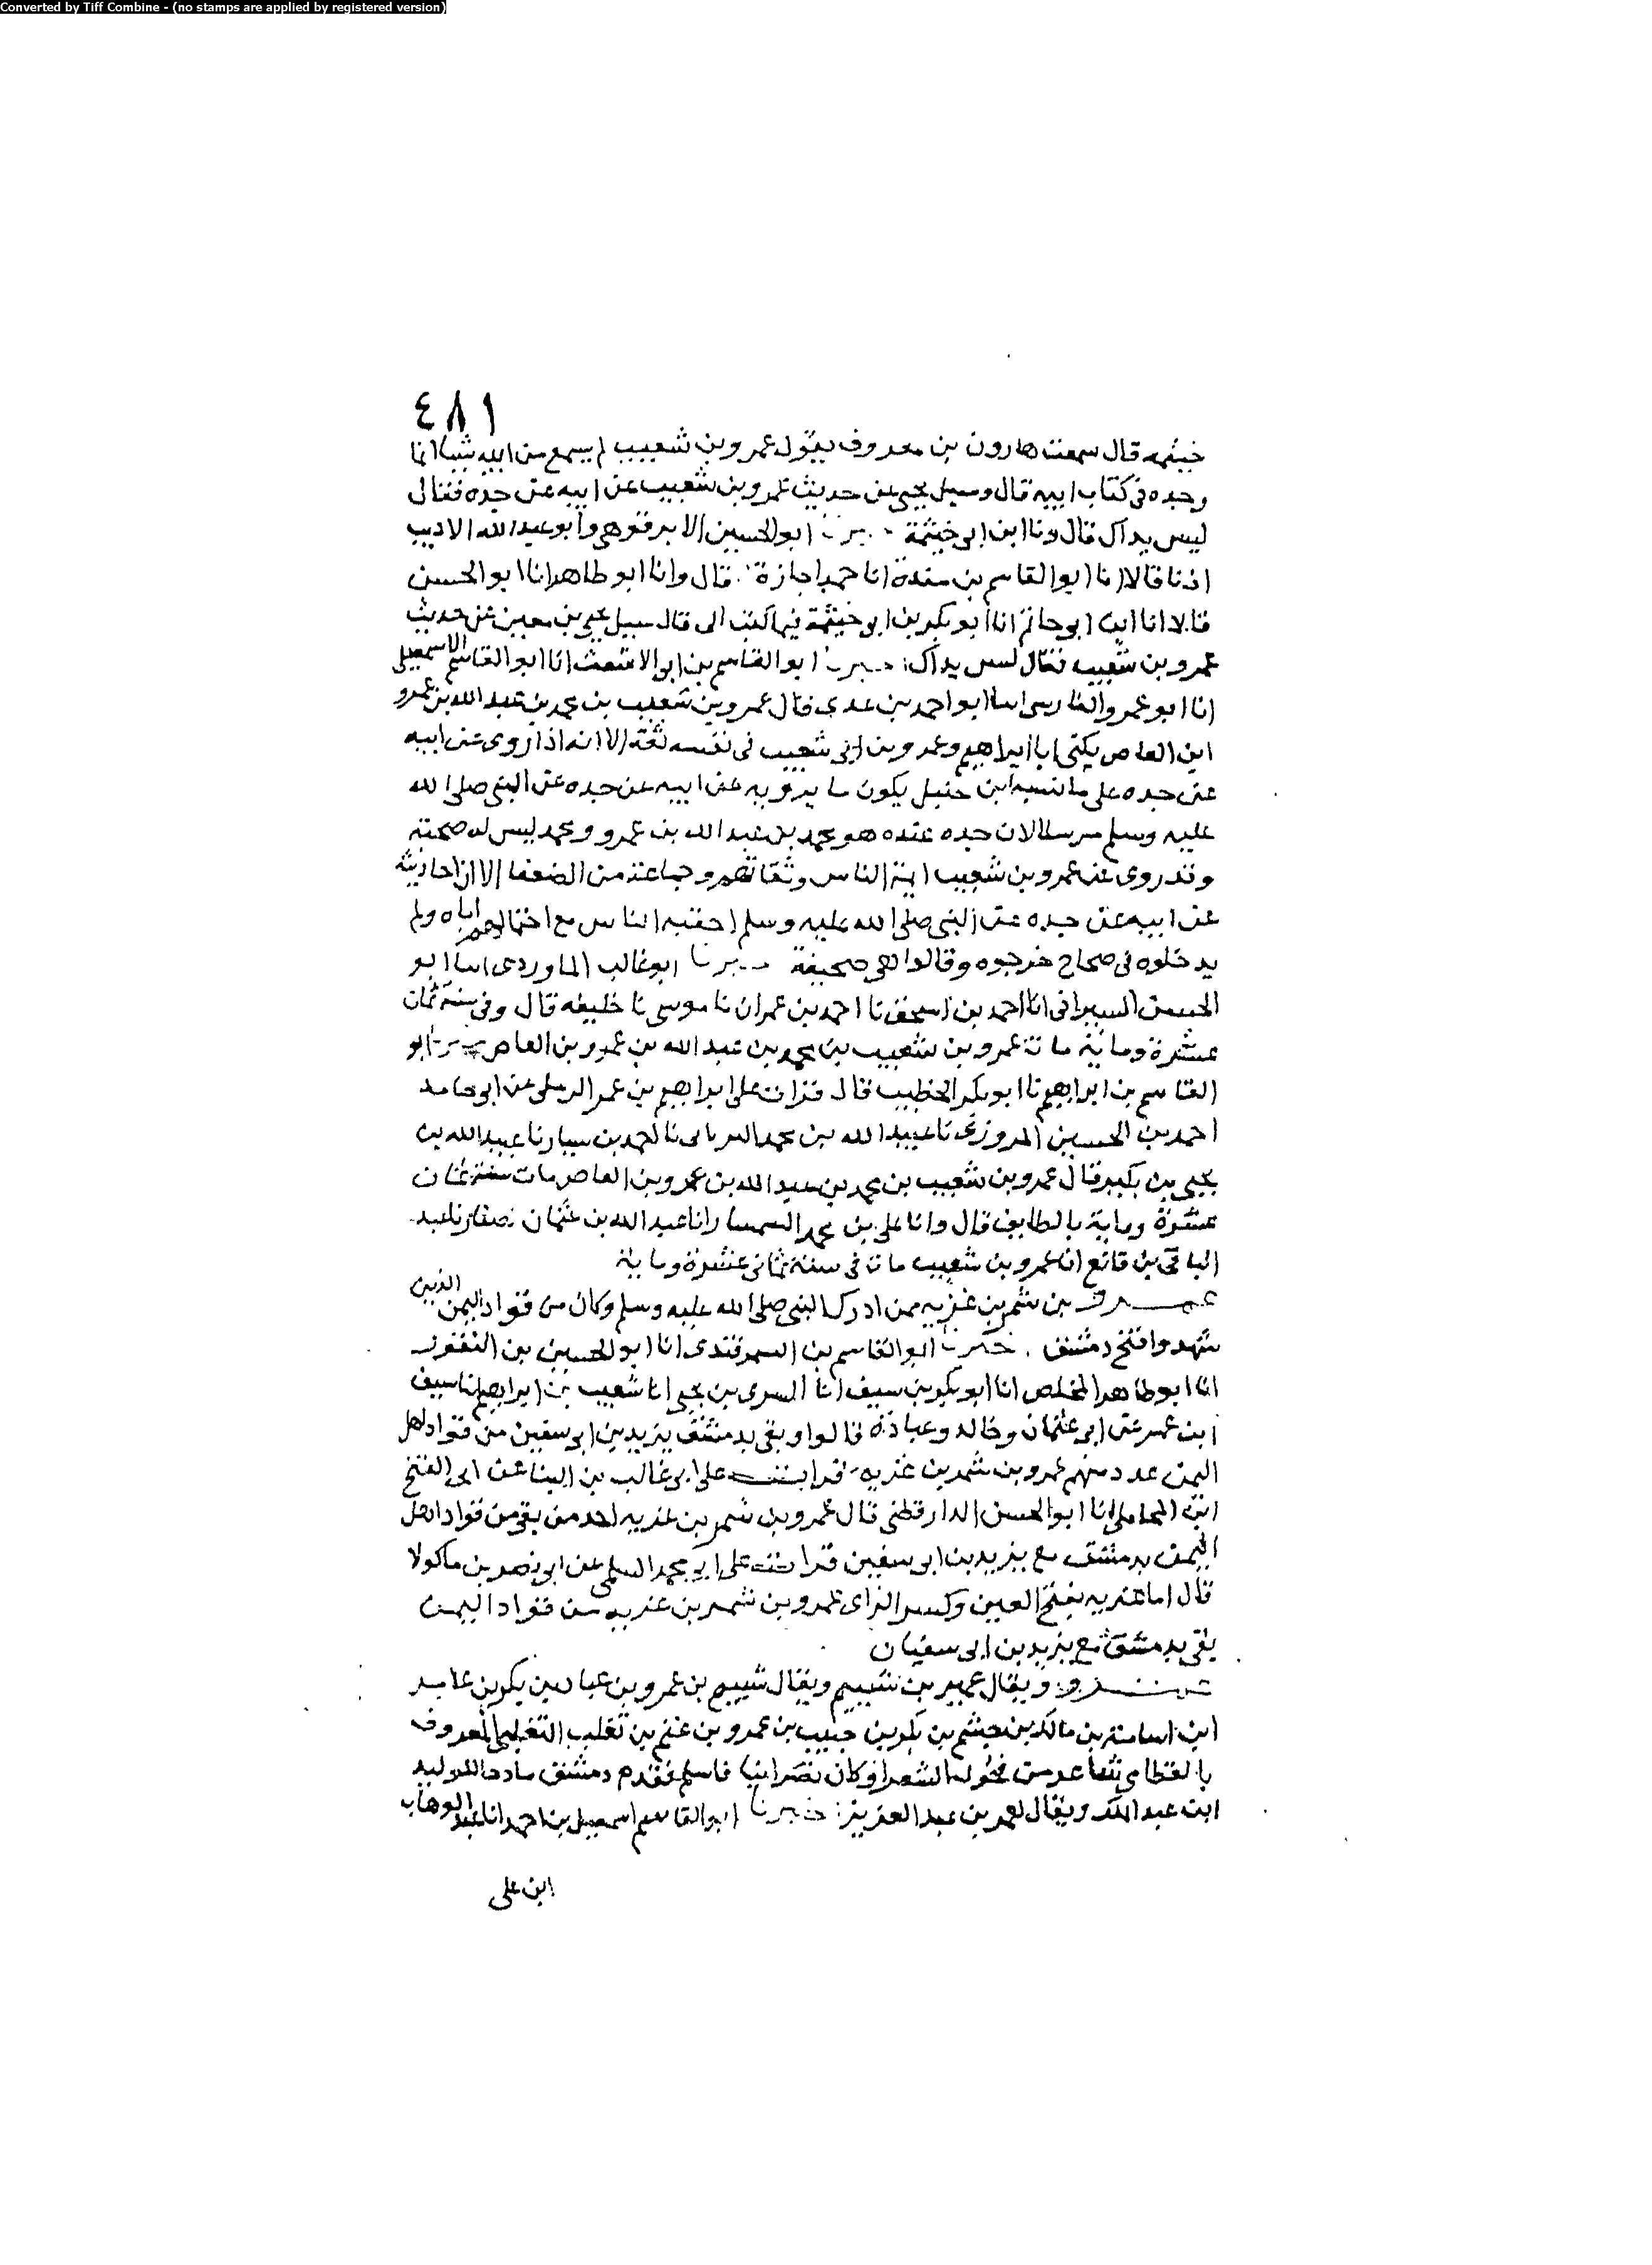 Converted by Tiff Combine - (no stamps are applied by registered version)
٤٨١
خيثمه قال سمعت هارون بن معروف يقول عمرو بن شعيب لم يسمع من ابيه شيا انما
وجده فى كتاب ابيه قال وسيل يحيى عن حديث عمرو بن شعيب عن ابيه عن جده فقال
ليس بداك قال ونا ابن ابى خيثمة ابو الحسين الابرقوهى وابو عبد الله الاديب
اذنا قالا انا ابو القاسم بن مندة انا حمد اجازة قال وانا ابو طاهر انا ابو الحسن
قالا انا ابن ابى حاتم انا ابو بكر بن ابى خيثمة فيما كتب الى قال سيل يحيى بن معين عن حديث
عمرو بن شعيب فقال ليس بداك ابو القاسم بن ابى الاشعث انا ابو القاسم الاسمعيلى
انا ابو عمرو الفارسى انا ابو احمد بن عدى قال عمرو بن شعيب بن محمد بن عبد الله بن عمرو
ابن العاص يكنى ابا ابراهيم وعمرو بن ابى شعيب فى نفسه ثقة الا انه اذا روى عن ابيه
عن جده على ما نسبه ابن حنبل يكون ما يرويه عن ابيه عن جده عن النبى صلى الله
عليه وسلم مرسلا لان جده عنده هو محمد بن عبد الله بن عمرو ومحمد ليس له صحبة
وقد روى عن عمرو بن شعيب ايمة الناس وثقاتهم وجماعة من الضعفا الا ان احاديثه
عن ابيه عن جده عن النبى صلى الله عليه وسلم اجتنبه الناس مع احتمالهم اياه ولم
يدخلوه فى صحاح خرجوه وقالوا هى صحيفة ابو غالب الماوردى انا ابو
الحسن السيرافى انا احمد بن اسحق نا احمد بن عمران نا موسى نا خليفه قال وفى سنة ثمان
عشرة وماية مات عمرو بن شعيب بن محمد بن عبد الله بن عمرو بن العاص ابو
القاسم بن ابراهيم نا ابو بكر الخطيب قال قرات على ابراهيم بن عمر الرملى عن ابى حامد
احمد بن الحسين المروزى نا عبيد الله بن محمد نا احمد بن سيار نا عبيد الله بن
يحيى بن بكير قال عمرو بن شعيب بن محمد بن عبد الله بن عمرو بن العاص مات سنة ثمان
عشرة وماية بالطايف قال وانا على بن محمد السمسار انا عبد الله بن عثمان الصفار نا عبد
الباقى بن قانع ان عمرو بن شعيب مات فى سنة ثمانى عشرة وماية
عمرو بن شمر بن غزيه ممن ادرك النبى صلى الله عليه وسلم وكان من قواد اليمن الذين
شهدوا فتح دمشق ابو القاسم بن السمرقندى انا ابو الحسين بن النقور
انا ابو طاهر المخلص انا ابو بكر بن سيف انا السرى بن يحيى انا شعيب بن ابراهيم انا سيف
ابن عمر عن ابى عثمان وخالد وعبادة قالوا وبقى بدمشق يزيد بن ابى سفين من قواد اهل
اليمن عدد منهم عمرو بن شمر بن غزيه قرات على ابى غالب بن البنا عن ابى الفتح
ابن المحاملى انا ابو الحسن الدارقطنى قال عمرو بن شمر بن غزيه احد من بقى من قواد اهل
اليمن بدمشق مع يزيد بن ابى سفين قرات على ابى محمد السلمى عن ابى نصر بن ماكولا
قال اما غزيه بفتح الغين وكسر الزاى عمرو بن شمر بن غزيه من قواد اليمن
بقى بدمشق مع يزيد بن ابى سفيان
عمرو ويقال عمير بن شييم ويقال شييم بن عمرو بن عباد بن بكر بن عامر
ابن اسامة بن مالك بن جشم بن بكر بن حبيب بن عمرو بن غنم بن تغلب التغلبى المعروف
بالقطامى شاعر من فحول الشعرا وكان نصرانيا فاسلم فقدم دمشق مادحا للوليد
ابن عبد الملك ويقال لعمر بن عبد العزيز ابو القاسم اسمعيل بن احمد انا عبد الوهاب
ابن على